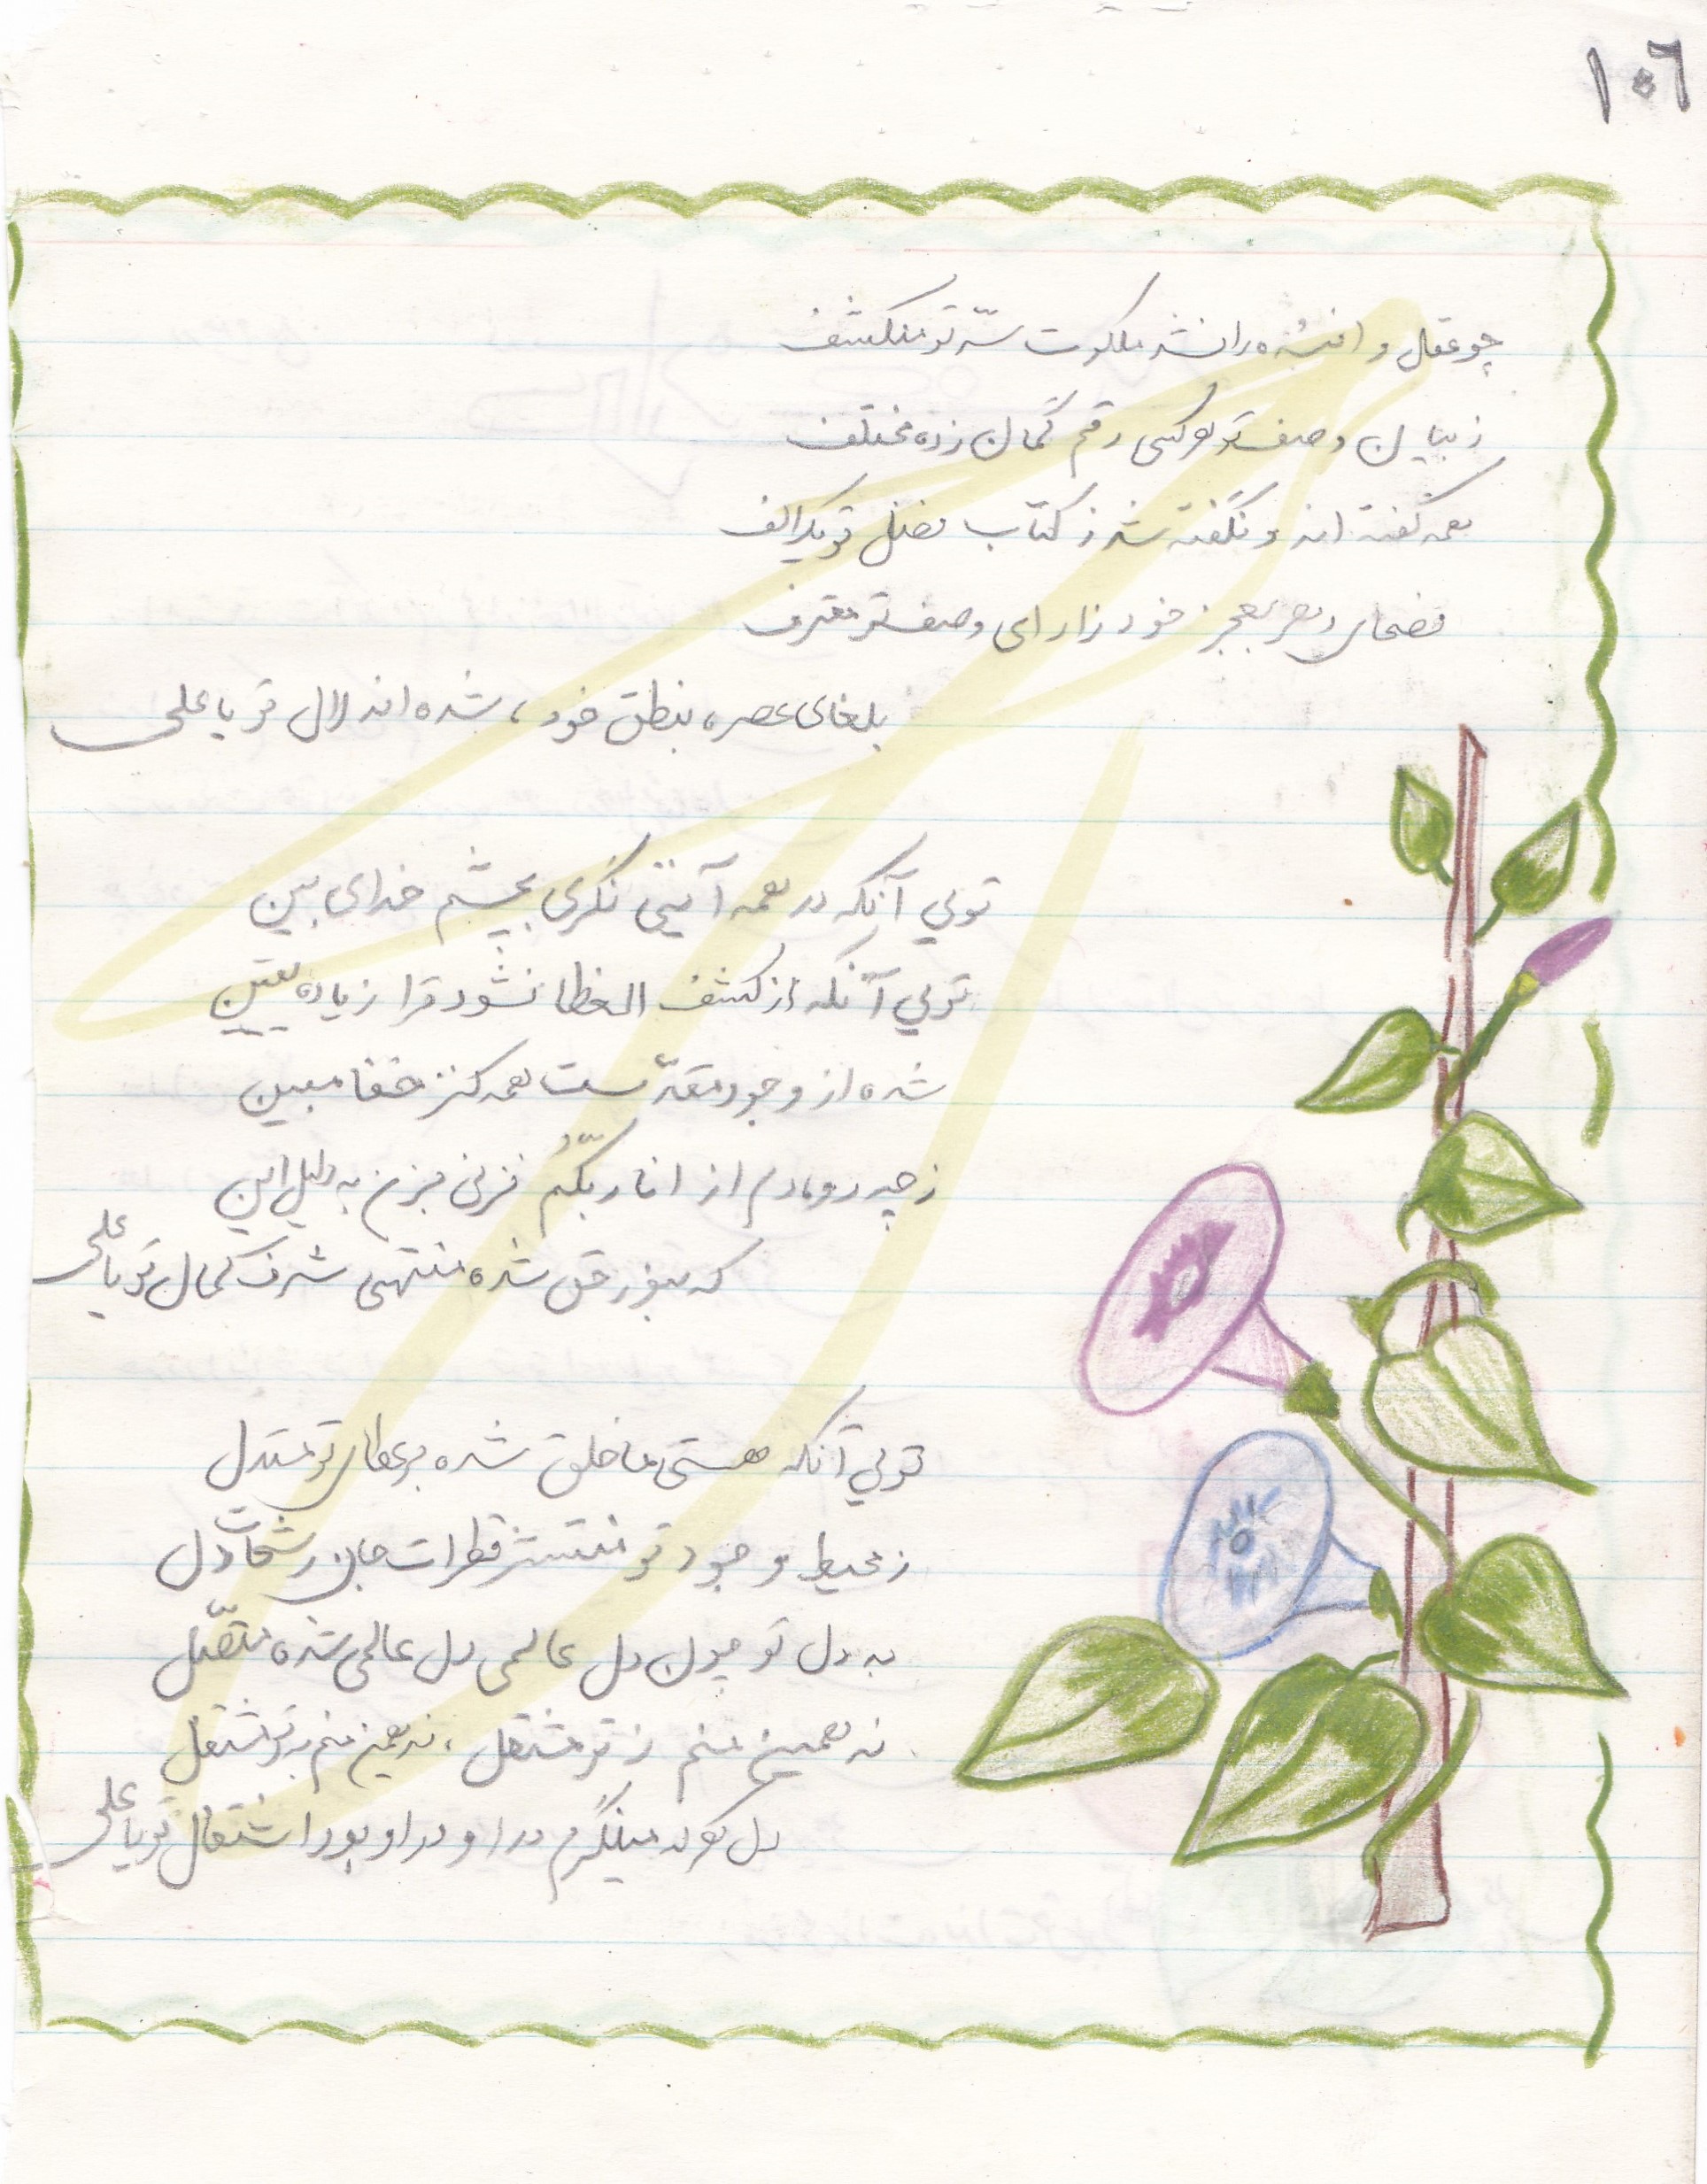 ١٠٦
چو عقول و افئده را نشد ملکوت سرّ تو منکشف
ز بیان وصف تو هر کسی رقم گمان زده مختلف
همه گفته اند و نگفته شد ز کتاب فضل تو یک الف
فصحای دهر بعجز خود ز ادای وصف تو معترف
بلغای عصر، بنطق خود، شده اند لال تو یا علی
تویی آنکه در همه آیتی نگری بچشم خدای بین
تویی آنکه از کشف الغطا نشود ترا زیاده یقین
شده از وجود مقدّست همه کنز خفا مبین
ز چه رو دمادم از انا ربّکم نزنی بزن به دلیل این
که بنور حق شده منتهی شرف کمال تو یا علی
تویی آنکه هستی ما خلق شده بر عطای تو مستدل
ز محیط وجود تو منتشر قطرات جان رشحات دل
به دل تو چون دل عالمی دل عالمی شده متّصل
نه همین منم ز تو مشتعل، نه همین منم به تو مشتغل
دل هر که مینگرم در او بود اشتغال تو یا علی